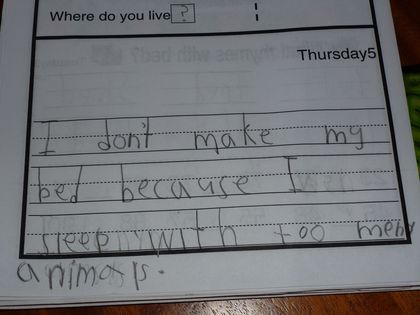 Where do you live ?
Thursday5
I don't make my
bed because I
sleep with too meny
animals.